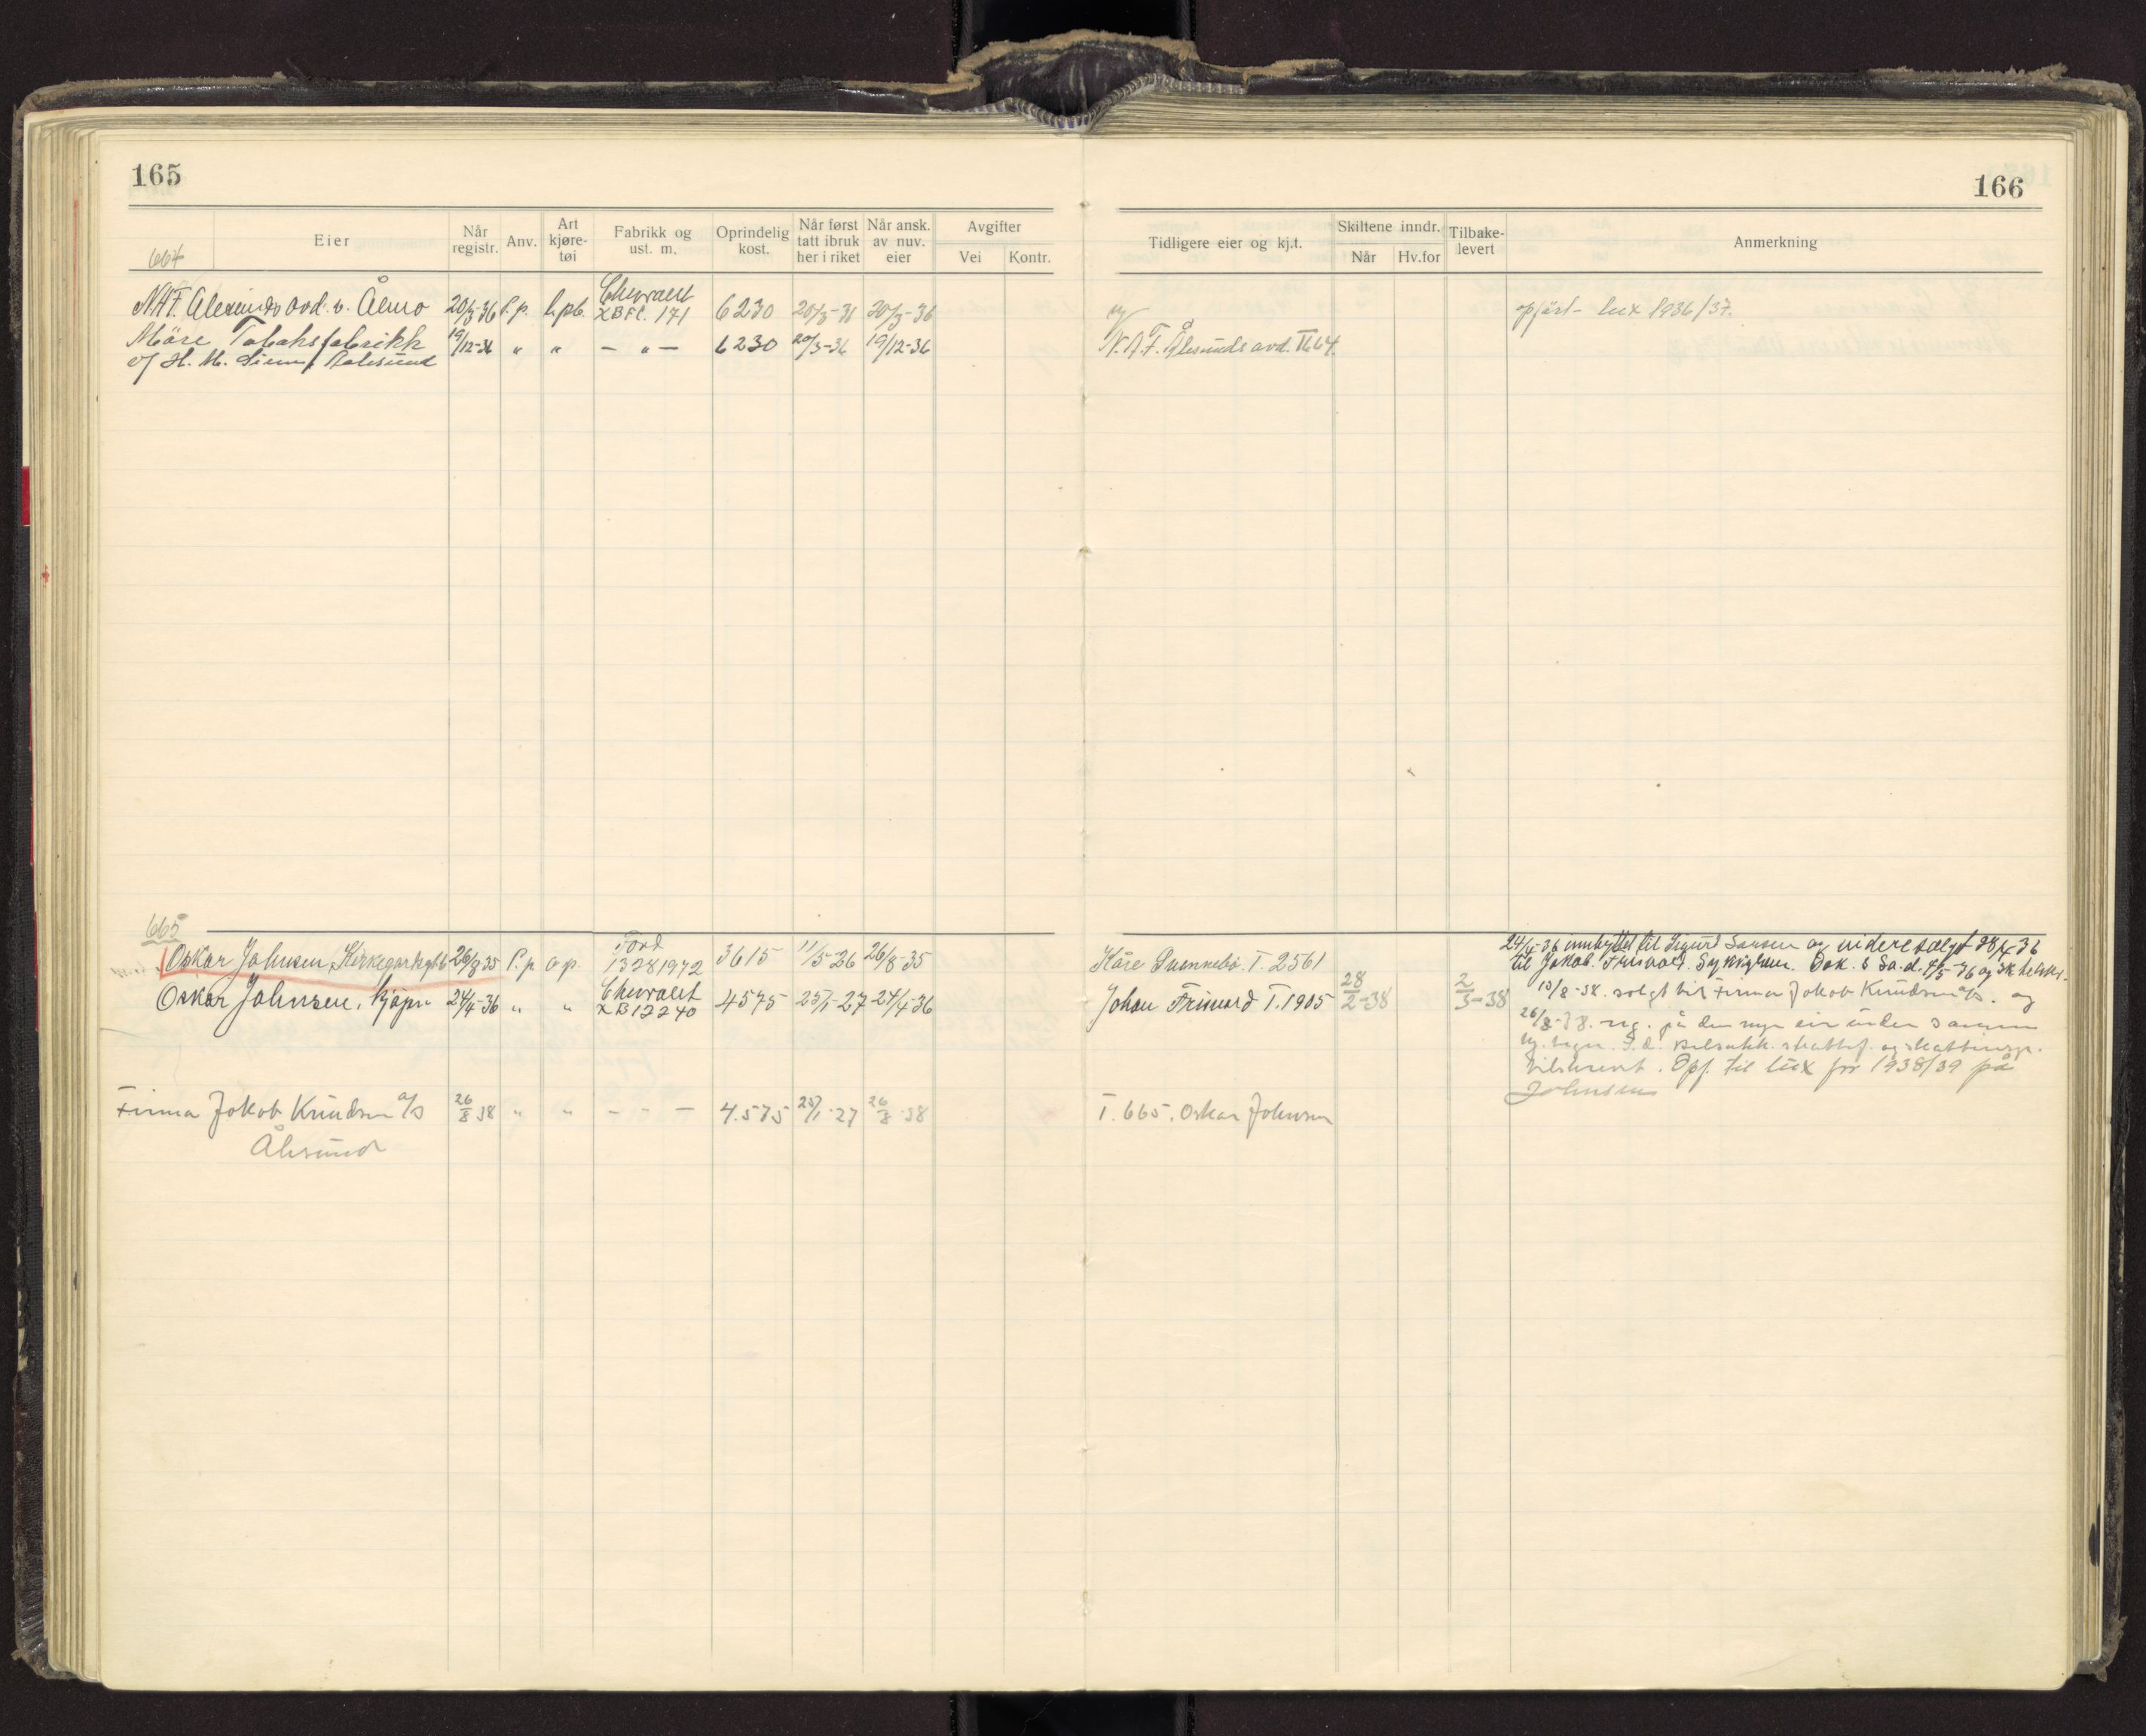 165
166
Eier
Når registr.
Anv.
Art kjøre- tøi
Fabrikk og ust. m.
Oprindelig kost.
Når først tatt ibruk her i riket
Når ansk. av nuv. eier
Avgifter
Vei
Kontr.
Tidligere eier og kj.t.
Skiltene inndr.
Når
Hv.for
Tilbake- levert
Anmerkning
664
N.A.F. avd. v. 20/3-36 P.p. l.pb. Chevrolet XBFC. 171 6230 20/3-36 20/3-36 ny lux 1936/37.
Møre Tobaksfabrikk 19/12-36 " " — " — 6230 20/3-36 19/12-36 N.A.F. Ålesunds avd. T 664.
v/ H. M. Aalesund
665
Oskar Johnsen, 26/8 35 P. p. a p. Ford 13281972 3615 11/5-26 26/8-35 Kåre T. 2561
24/4-36 innbyttet til Sigurd og videresolgt 28/4-36
til Jakob Dok. & Sa. d. 4/5-36 og
Oskar Johnsen, Kjøpm 24/4-36 " " Chevrolet XB12240 4575 25/1-27 24/4-36 Johan T. 1905 28/2-38 2/3-38
13/8-38. solgt til Firma Jakob Knudsen a/s. og
26/8-38. reg. på den nye eier under samme
. Opf. til lux for 1938/39 på
Johnsen
Firma Jakob Knudsen a/s 26/8 38 " " - " - 4.575 25/1-27 26/8-38 T. 665. Oskar Johnsen
Ålesund